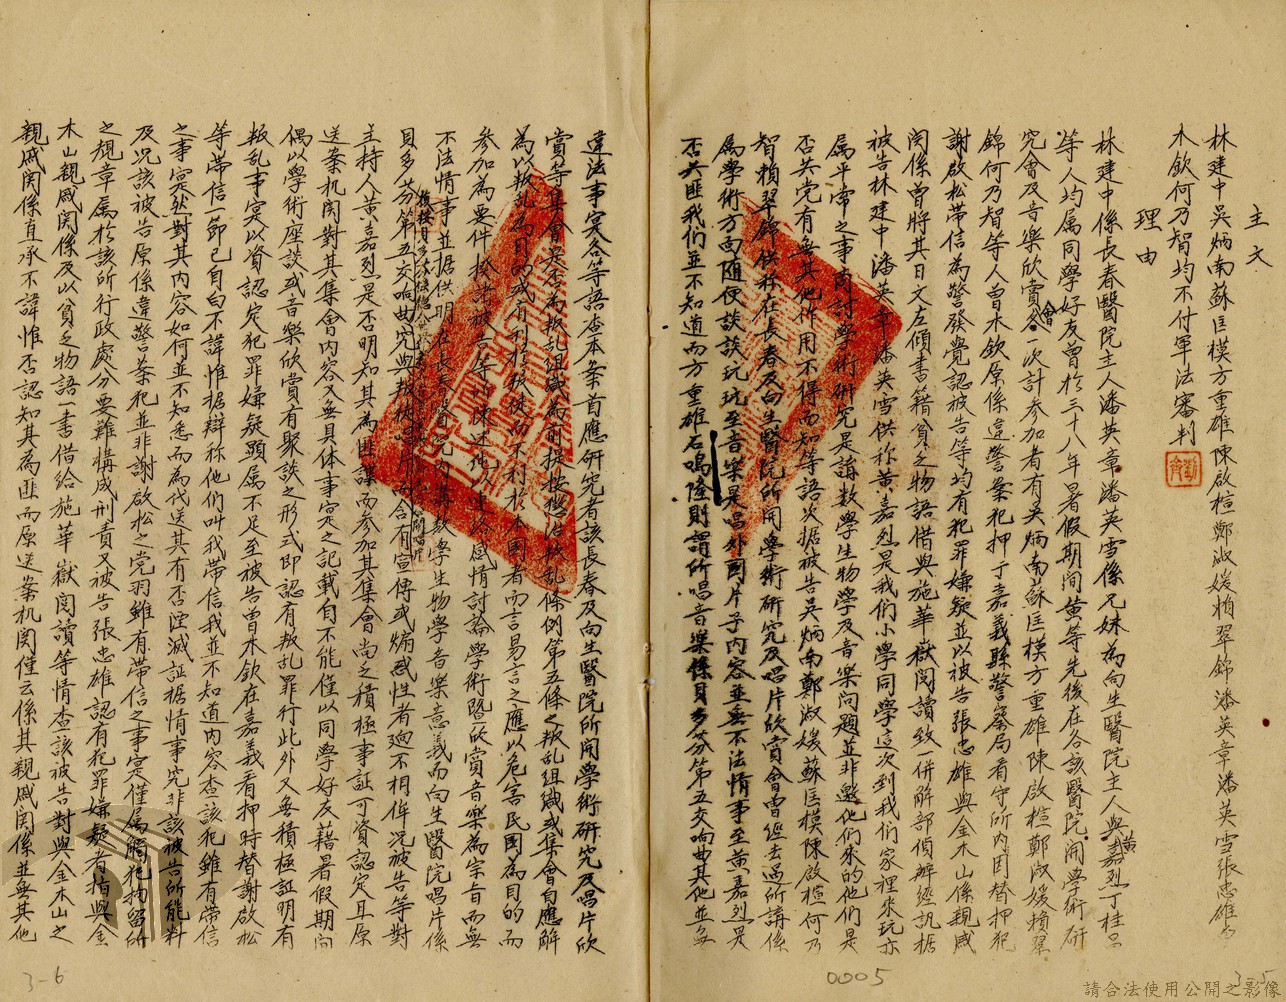 主文
林建中吳炳南蘇匡模方重雄陳啟楦鄭淑媛賴翠錦潘英章潘英雪張忠雄曾
木欽何乃智均不付軍法審判
理由
林建中係長春醫院主人潘英章潘英雪係兄妹為向生醫院主人與黃嘉烈丁桂昌
等人均属同學好友曾於三十八年暑假期间黃等先後在各該醫院開學術研
究會及音樂欣賞會一次計参加者有吳炳南蘇匡模方重雄陳啟楦鄭淑媛賴翠
錦何乃智等人曾木欽原係違警案犯押于嘉義縣警察局看守所内因替押犯
謝啟松带信為警發覺認被告等均有犯罪嫌疑並以被告張忠雄與金木山係親戚
関係曾將其日文左傾書籍貧乏物語借與施華嶽閱讀致一併解部偵辦經訊据
被告林建中潘英章潘英雪供称黃嘉烈是我们小學同學這次到我们家裡來玩亦
属平常之事商討學術研究是講数學生物學及音樂问題並非邀他们來的他们是
否共党有無其他作用不得而知等語次据被告吳炳南鄭淑媛蘇匡模陳啟楦何乃
智賴翠錦供称在長春及向生醫院所開學術研究及唱片欣賞會曾經去過所講係
属學術方面随便談談玩玩至音樂是唱外國片子内容並無不法情事至黃嘉烈是
否共匪我们並不知道而方重雄石鳴隆則謂所唱音樂係貝多芬第五交响曲其他並無
違法事实各等語查本案首應研究者該長春及向生醫院所開學術研究及唱片欣
賞等集會是否為叛乱組織為前提按懲治叛乱條例第五條之叛乱組織或集會自應解
為以叛乱為目的或有利於叛徒而不利於本國者而言易言之應以危害民國為目的而
参加為要件按諸被告等所陳述他们連絡感情討論學術暨欣賞音樂為宗旨而無
不法情事並据供明在長春醫院内專講数學生物學音樂意義而向生醫院唱片係
貝多芬第五交响曲究與叛徒所用含有宣傳或煽惑性者迥不相侔况被告等對
主持人黃嘉烈是否明知其為匪諜而参加其集會尚乏積極事証可資認定且原
送案机関對其集會内容又無具体事实之記載自不能僅以同學好友藉暑假期间
偶以學術座談或音樂欣賞有聚談之形式即認有叛乱罪行此外又無積極証明有
叛乱事实以資認定犯罪嫌疑顕属不足至被告曾木欽在嘉義看押時替謝啟松
等带信一節已自白不諱惟据辯称他们叫我带信我並不知道内容查該犯雖有带信
之事实然對其内容如何並不知悉而為代送其有否湮滅証据情事究非該被告所能料
及况該被告原係違警案犯並非謝啟松之党羽雖有带信之事实僅属觸犯拘留所
之規章属於該所行政處分要難構成刑責又被告張忠雄認有犯罪嫌疑者指與金
木山親戚関係及以貧乏物語一書借给施華嶽閱讀等情查該被告對與金木山之
親戚関係直承不諱惟否認知其為匪而原送案机関僅云係其親戚関係並無其他
3-6
0005
3-5
請合法使用公開之影像